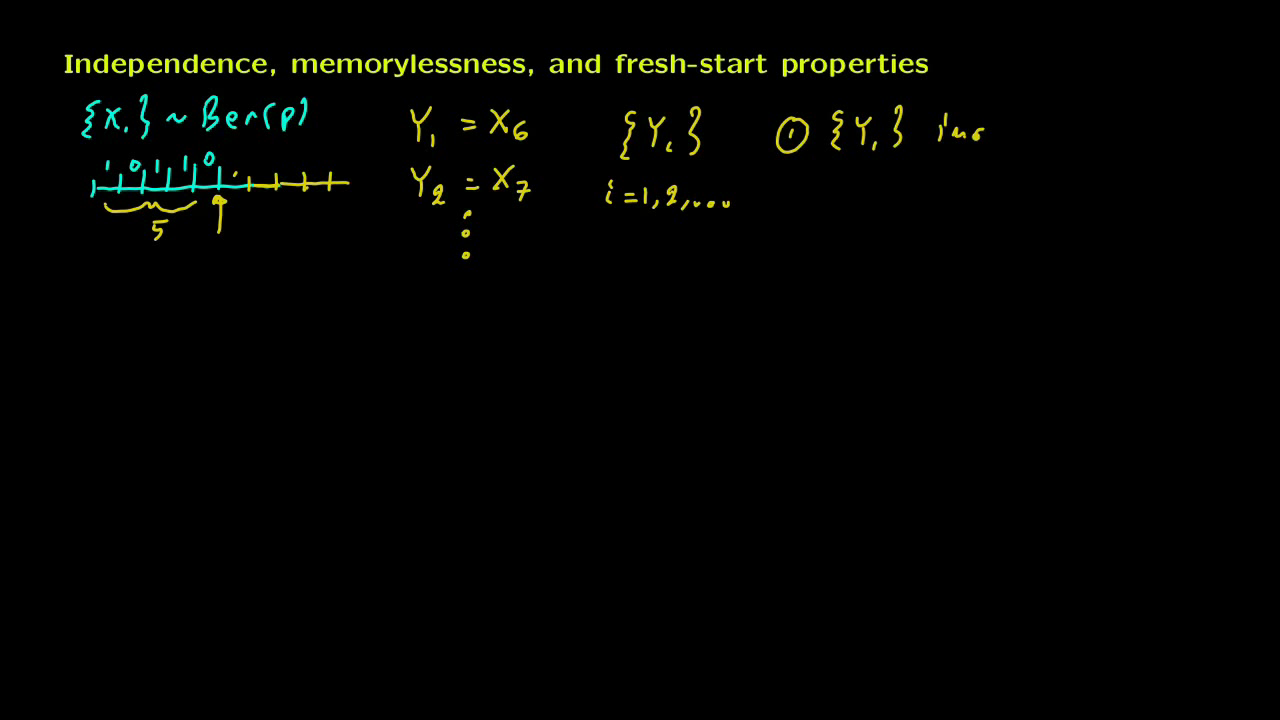 Independence, memorylessness, and fresh-start properties
{X_i} ~ Ber(p)
1 0 1 1 0
5
Y_1 = X_6
Y_2 = X_7
⋮
{Y_i}
i = 1, 2, ...
① {Y_i}